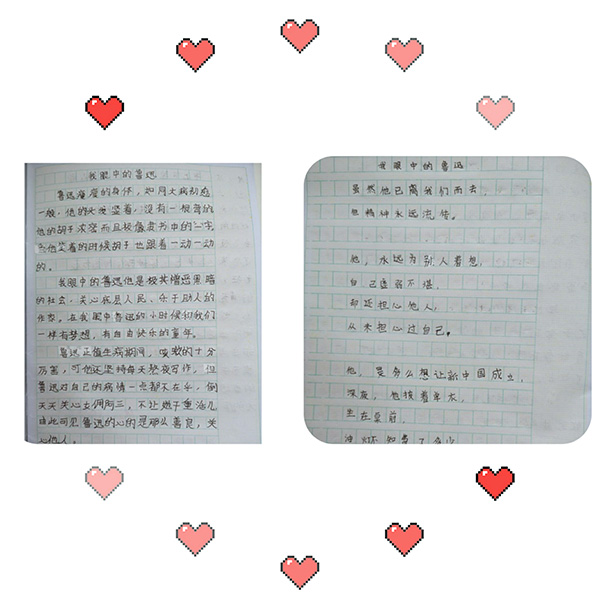 我眼中的鲁迅
鲁迅瘦瘦的身体，如同大病初愈
一般，他的头发竖着，没有一根弯的
他的胡子浓密而且极像隶书中的一字
他笑着的时候胡子也跟着一动一动
的。
我眼中的鲁迅他是极其憎恶黑暗
的社会，关心底层人民、乐于助人的
作家。在我眼中鲁迅的小时候和我们
一样有梦想，有自由快乐的童年。
鲁迅正值生病期间，咳嗽的十分
厉害，可他还坚持每天熬夜写作，但
鲁迅对自己的病情一点都不在乎，倒
天天关心女佣阿三，不让她干重活儿
由此可见鲁迅的心的是那么善良，关
心他人。
我眼中的鲁迅
虽然他已离我们而去，
他精神永远流传。
他，永远为别人着想，
自己虚弱不堪，
却还担心他人，
从未担心过自己。
他，是多么想让新中国成立，
深夜，他披着单衣，
坐在桌前，